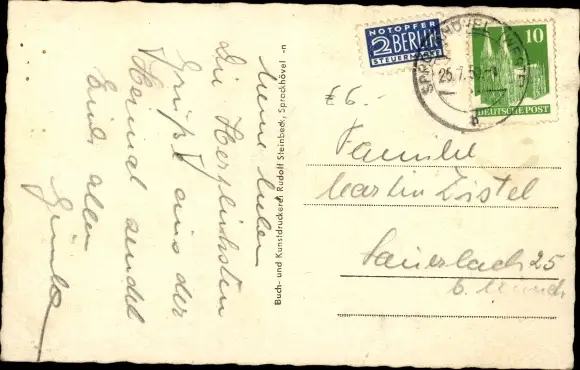 Meine Lieben
Die Herzlichsten
Grüße aus der
Heimat sendet
Euch allen
Günter
Buch- und Kunstdruckerei Rudolf Steinbeck, Sprockhövel -n
NOTOPFER
2 BERLIN
STEUERMARKE
SPROCKHÖVEL
25.7.50
b
10
DEUTSCHE POST
Familie
Martin Zistel
Sauerlach 25
b. Münch